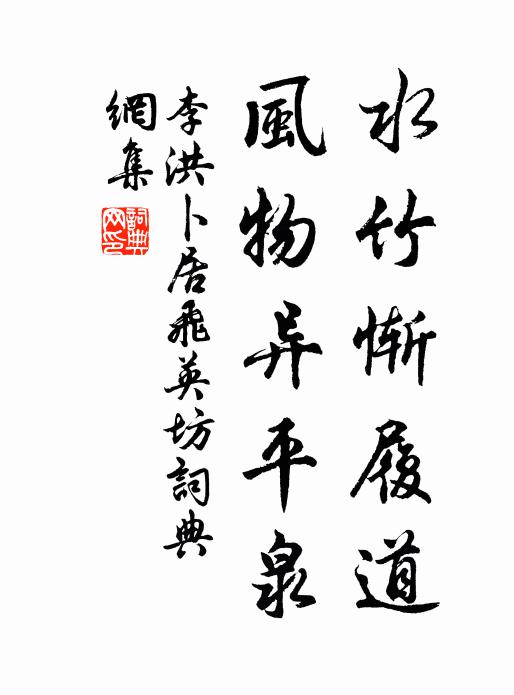 水竹慚履道
風物异平泉
李洪卜居飛英坊詞典
網集
詞典网印